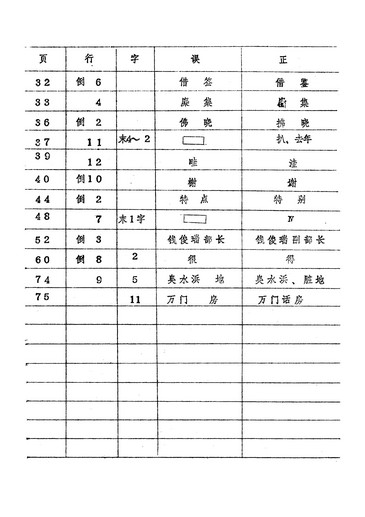 页 行 字 误 正
32 倒 6 借 签 借 鉴
33 4 麇 集 集
36 倒 2 佛 晓 拂 晓
37 11 末4～2 扒、去年
39 12 哇 洼
40 倒10 榭 谢
44 倒 2 特 点 特 别
48 7 末1字 N
52 倒 3 钱俊瑞部长 钱俊瑞副部长
60 倒 8 2 很 得
74 9 5 臭水浜 地 臭水浜、脏地
75 11 万门 房 万门话房